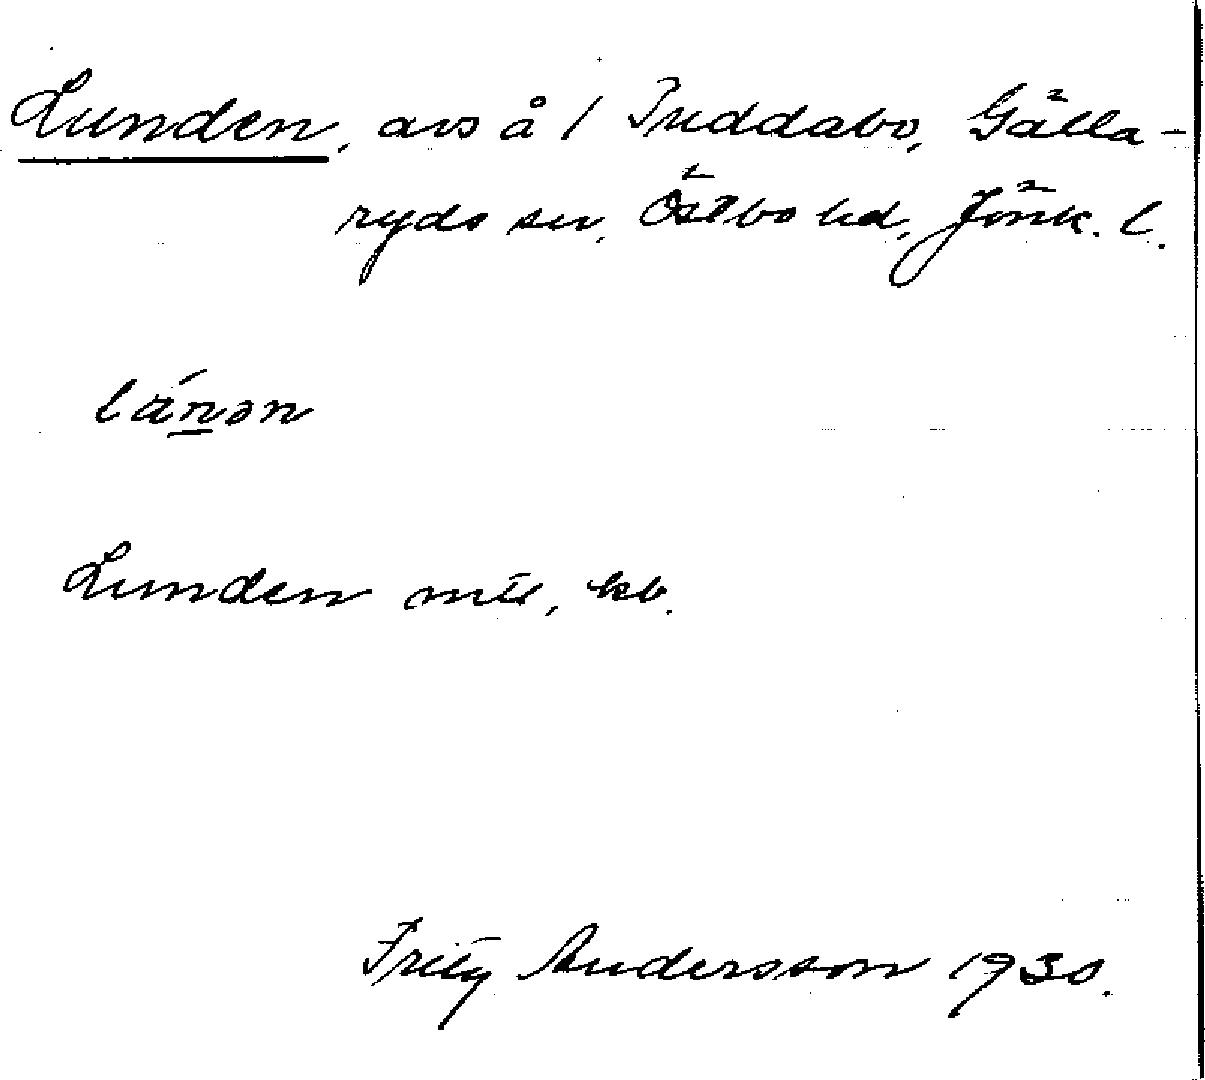 Lunden, avs å 1 Truddabo, Gälla-
ryds sn, Östbo hd, Jönk. l.
Lunden mtl, kb.
Fritz Andersson 1930.